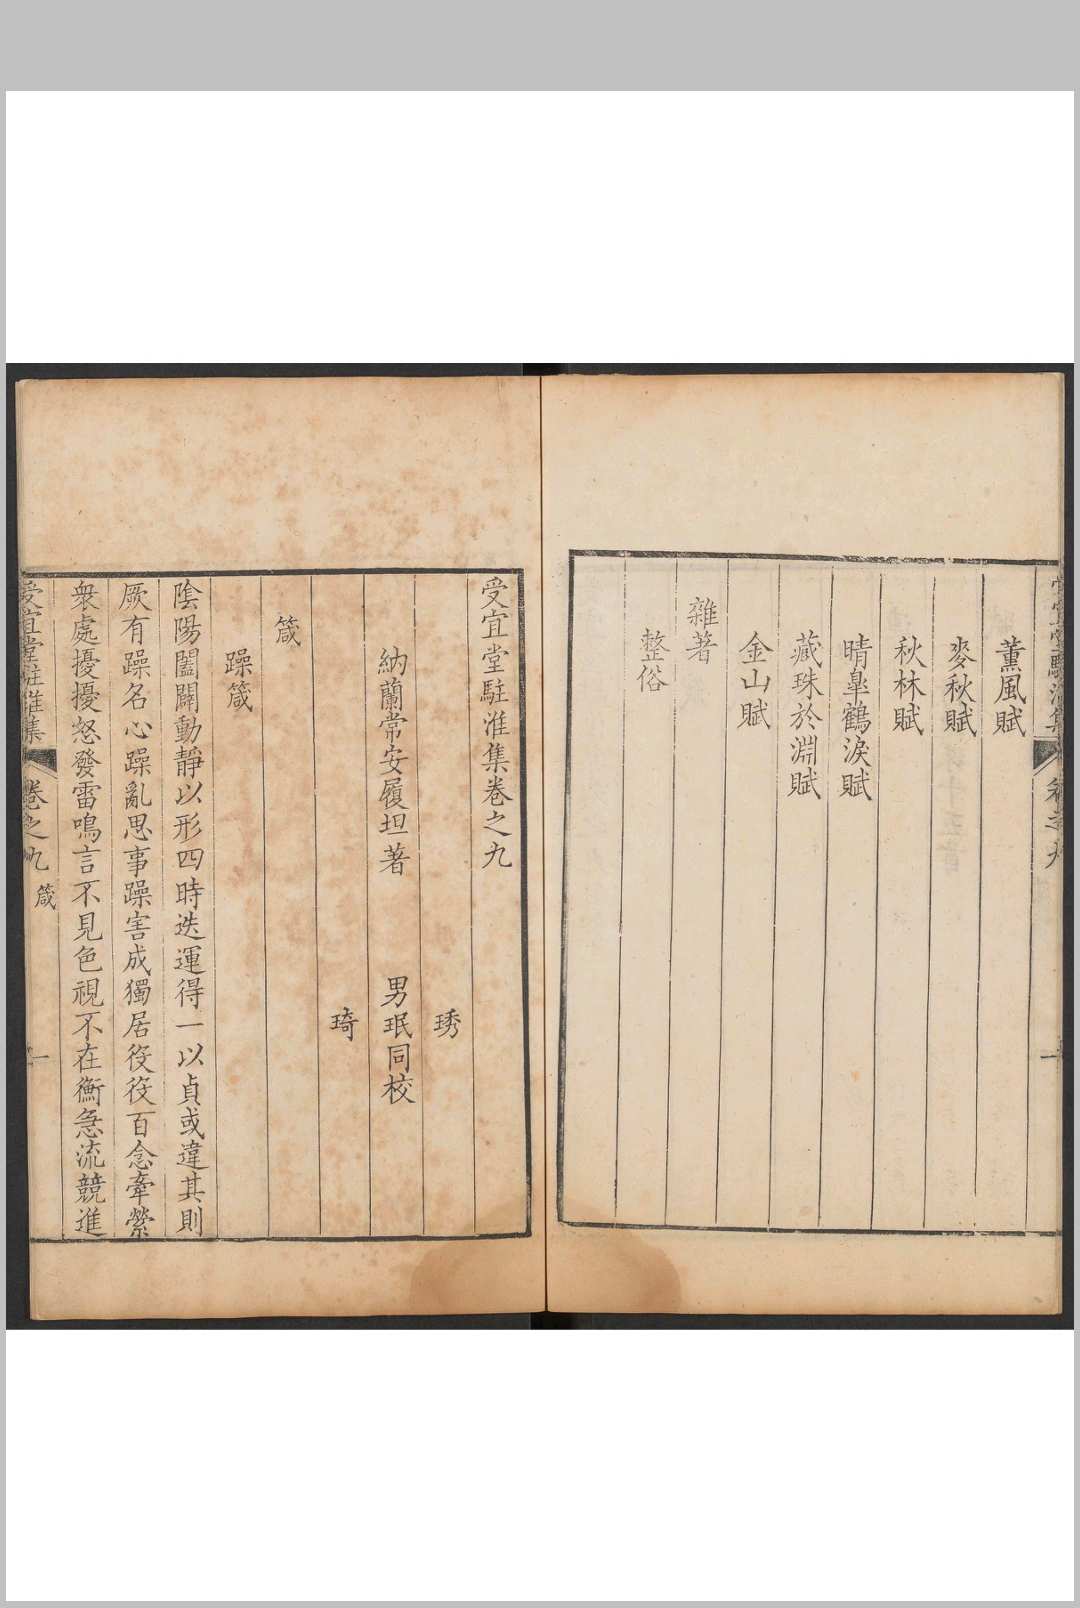 薰風賦
麥秋賦
秋林賦
晴皐鶴淚賦
藏珠於淵賦
金山賦
雜著
整俗
受宜堂駐淮集卷之九
琇
納蘭常安履坦著 男珉同校
琦
箴
躁箴
陰陽闔闢動靜以形四時迭運得一以貞或違其則
厥有躁名心躁亂思事躁害成獨居役役百念牽縈
衆處擾擾怒發雷鳴言不見色視不在衡急流競進
受宜堂駐淮集 卷之九 箴 一